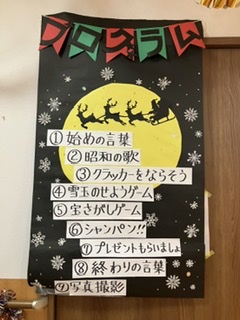 プログラム
①始めの言葉
②昭和の歌
③クラッカーをならそう
④雪玉のせようゲーム
⑤宝さがしゲーム
⑥シャンパン!!
⑦プレゼントもらいましょ
⑧終わりの言葉
⑨写真撮影